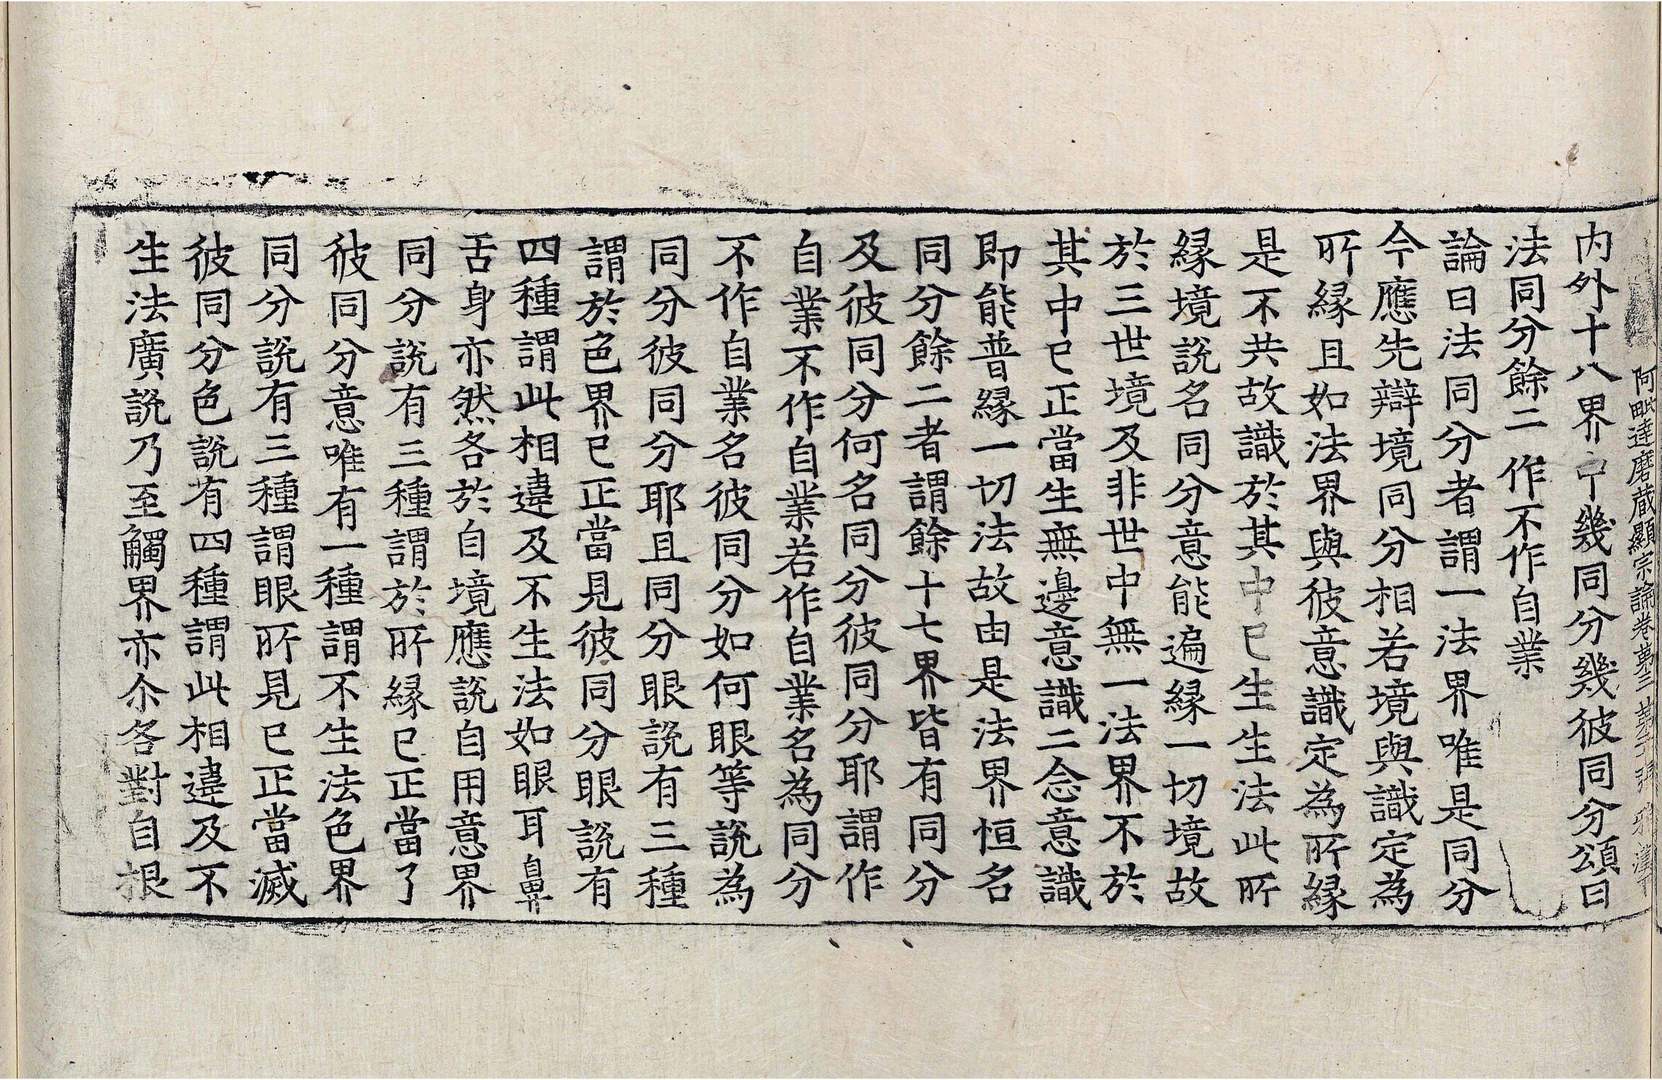 阿毗達磨蔵顯宗論卷第三 苐 張 雅
内外十八界中幾同分幾彼同分頌曰
法同分餘二 作不作自業
論曰法同分者謂一法界唯是同分
今應先辯境同分相若境與識定為
所縁且如法界與彼意識定為所縁
是不共故識於其中已生生法此所
縁境說名同分意能遍縁一切境故
於三世境及非世中無一法界不於
其中已正當生無邊意識二念意識
即能普縁一切法故由是法界恒名
同分餘二者謂餘十七界皆有同分
及彼同分何名同分彼同分耶謂作
自業不作自業若作自業名為同分
不作自業名彼同分如何眼等說為
同分彼同分耶且同分眼說有三種
謂於色界已正當見彼同分眼說有
四種謂此相違及不生法如眼耳鼻
舌身亦然各於自境應說自用意界
同分說有三種謂於所縁已正當了
彼同分意唯有一種謂不生法色界
同分說有三種謂眼所見已正當滅
彼同分色說有四種謂此相違及不
生法廣說乃至觸界亦尒各對自根